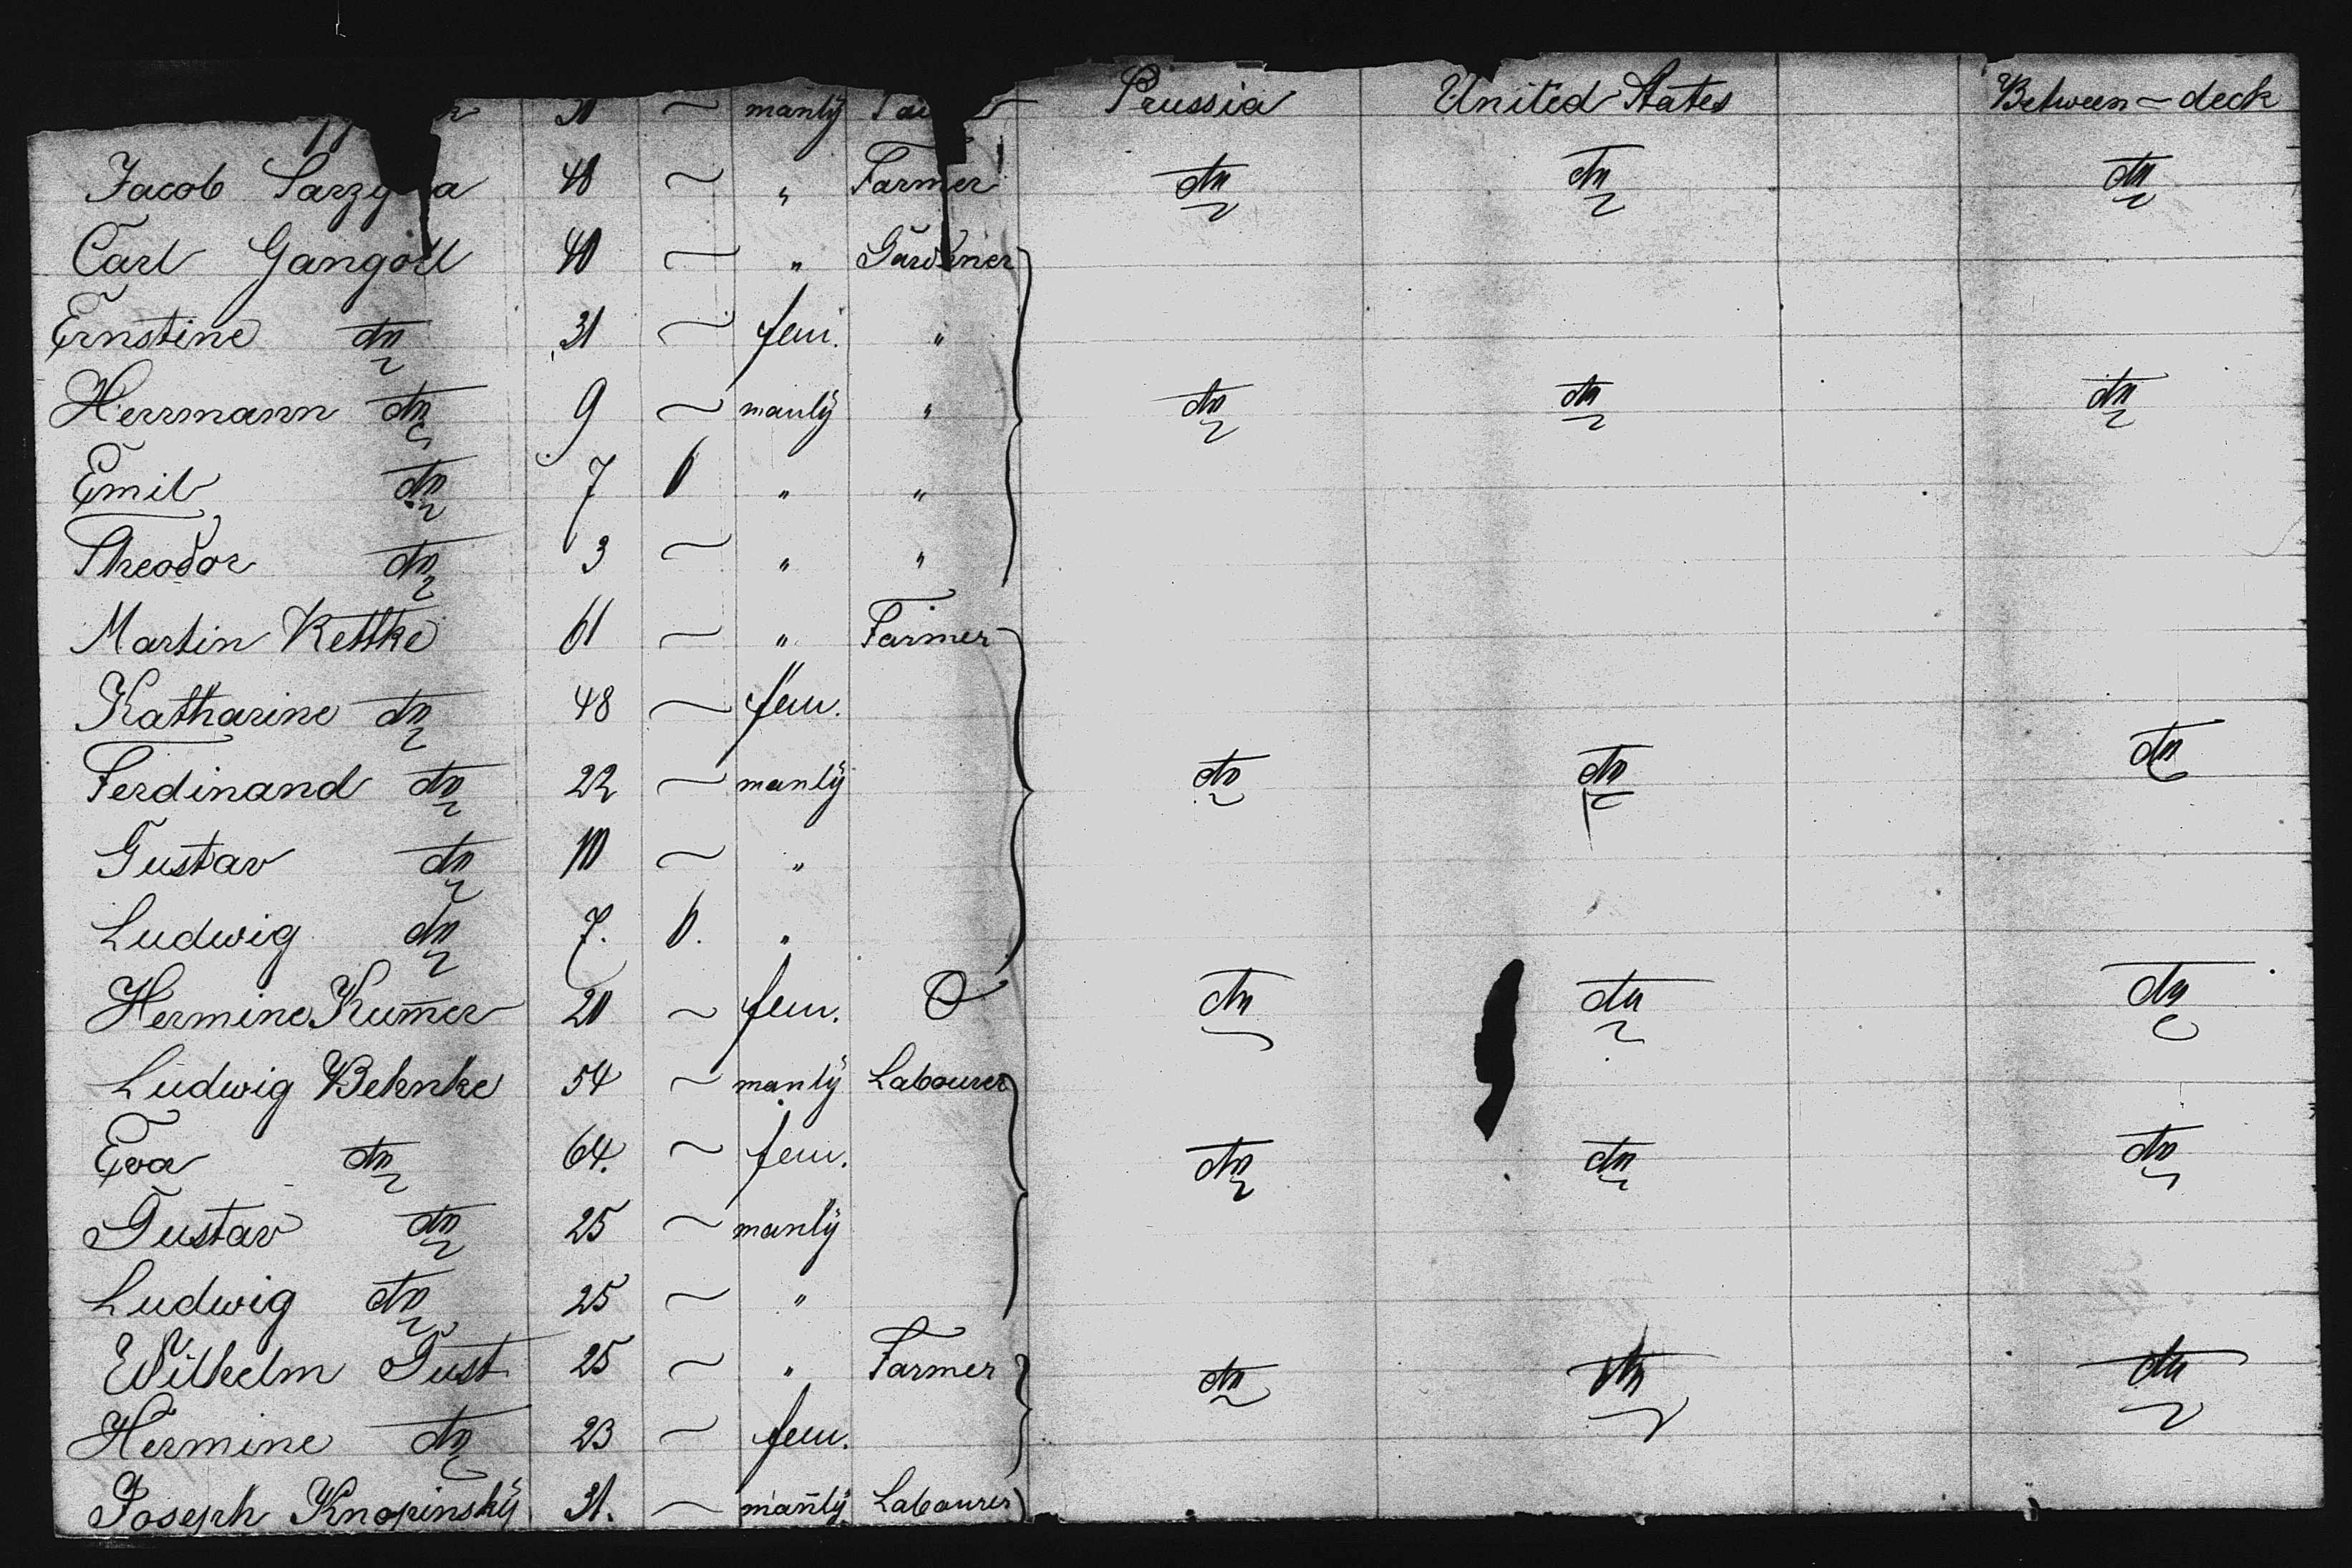 manly Prussia United States Between - deck
Jacob 48 ~ " Farmer do do do
Carl Gangoll 40 ~ " Gardener
Ernstine do 31 ~ fem. "
Herrmann do 9 ~ manly " do do do
Emil do 7 6 " "
Theodor do 3 ~ " "
Martin Kettke 61 ~ " Farmer
Katharine do 48 ~ fem.
Ferdinand do 22 ~ manly do do do
Gustav do 10 ~ "
Ludwig do 7. 6. "
Hermine Kum̅er 20 ~ fem. O do do do
Ludwig Behnke 54 ~ manly Labourer
Eva do 64. ~ fem. do do do
Gustav do 25 ~ manly
Ludwig do 25 ~ "
Wilhelm Gust 25 ~ " Farmer do do do
Hermine do 23 ~ fem.
Joseph Knopinsky 31. ~ manly Labourer